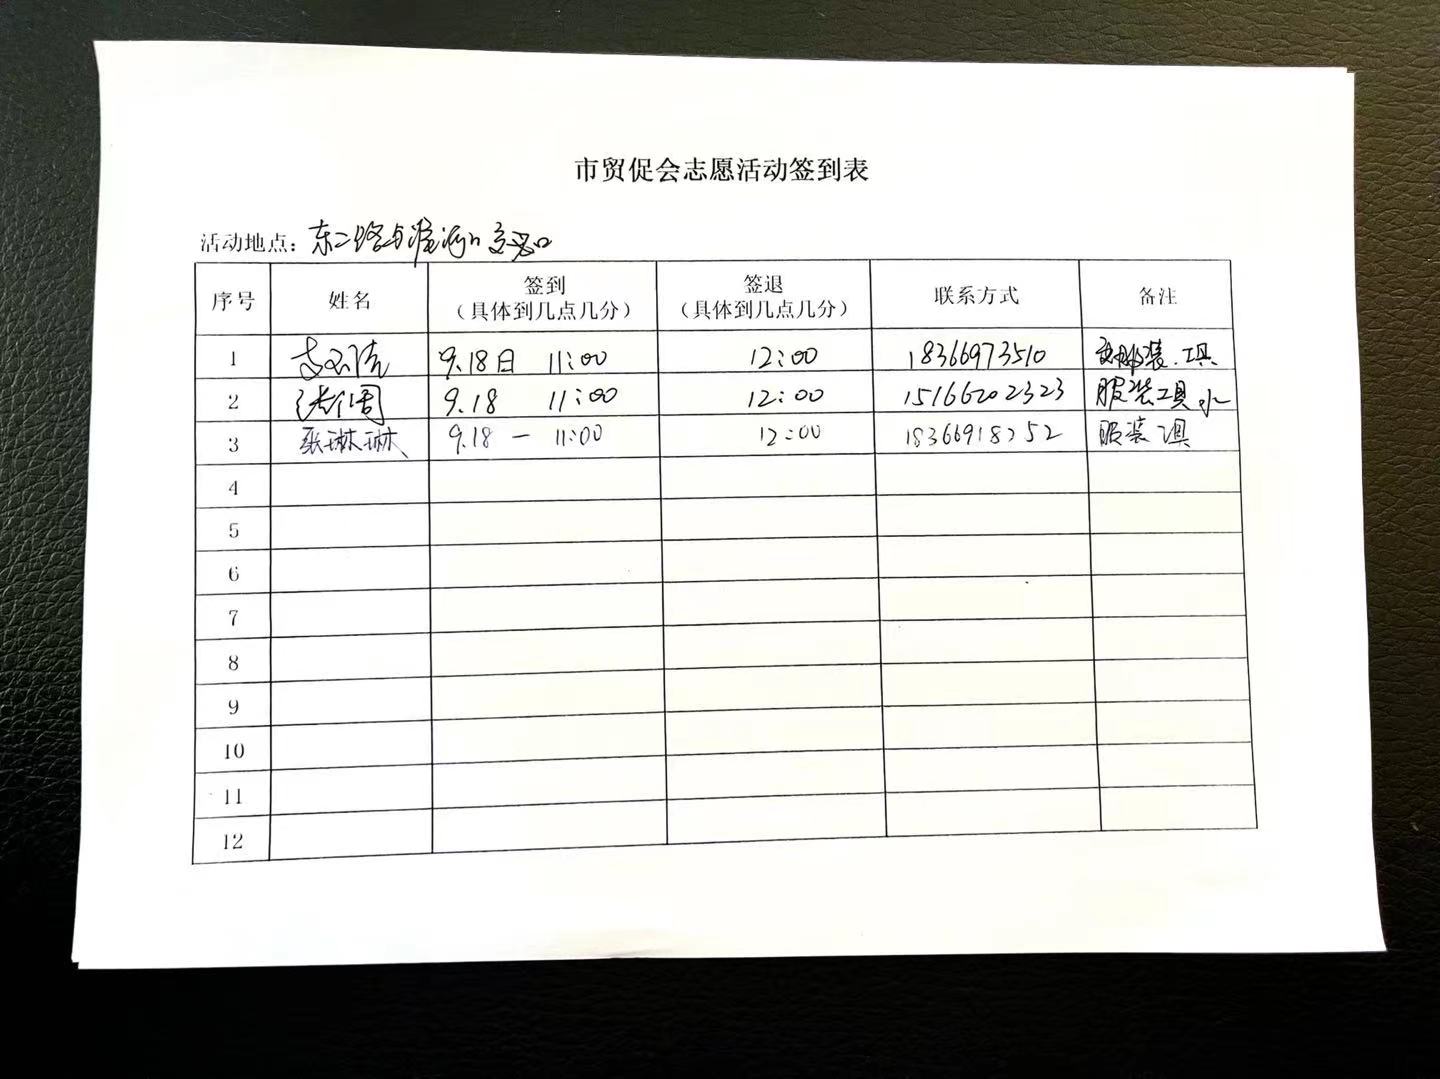 市贸促会志愿活动签到表
活动地点：东二路与淮河路交叉口
序号 姓名 签到（具体到几点几分） 签退（具体到几点几分） 联系方式 备注
1 9.18日 11:00 12:00 18366973510 服装.工具
2 9.18 11:00 12:00 15166202323 服装工具水
3 张琳琳 9.18 — 11:00 12:00 18366918252 服装工具
4
5
6
7
8
9
10
11
12